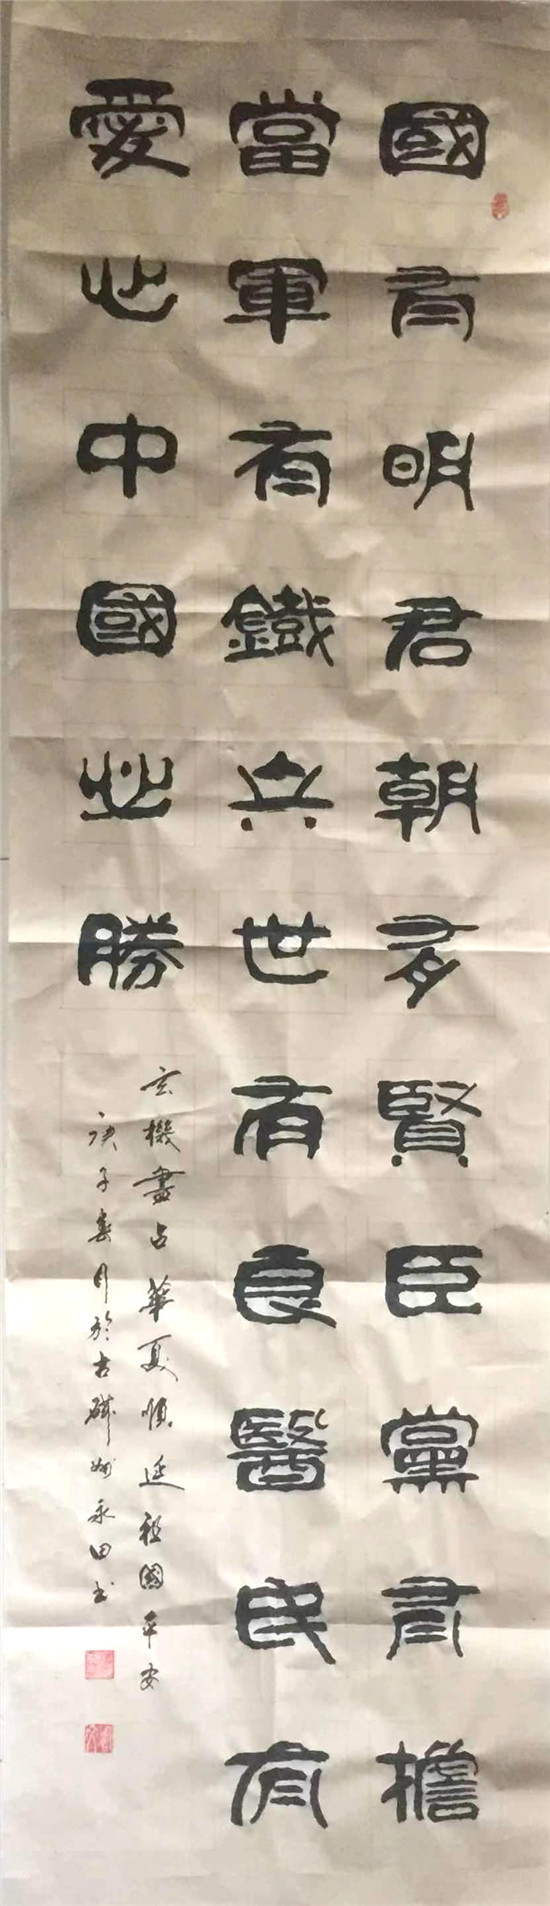 國有明君朝有賢臣黨有擔
當軍有鐵兵世有良醫民有
愛心中國必勝
玄機盡占華夏順延祖國平安
庚子春月於古 州永田書